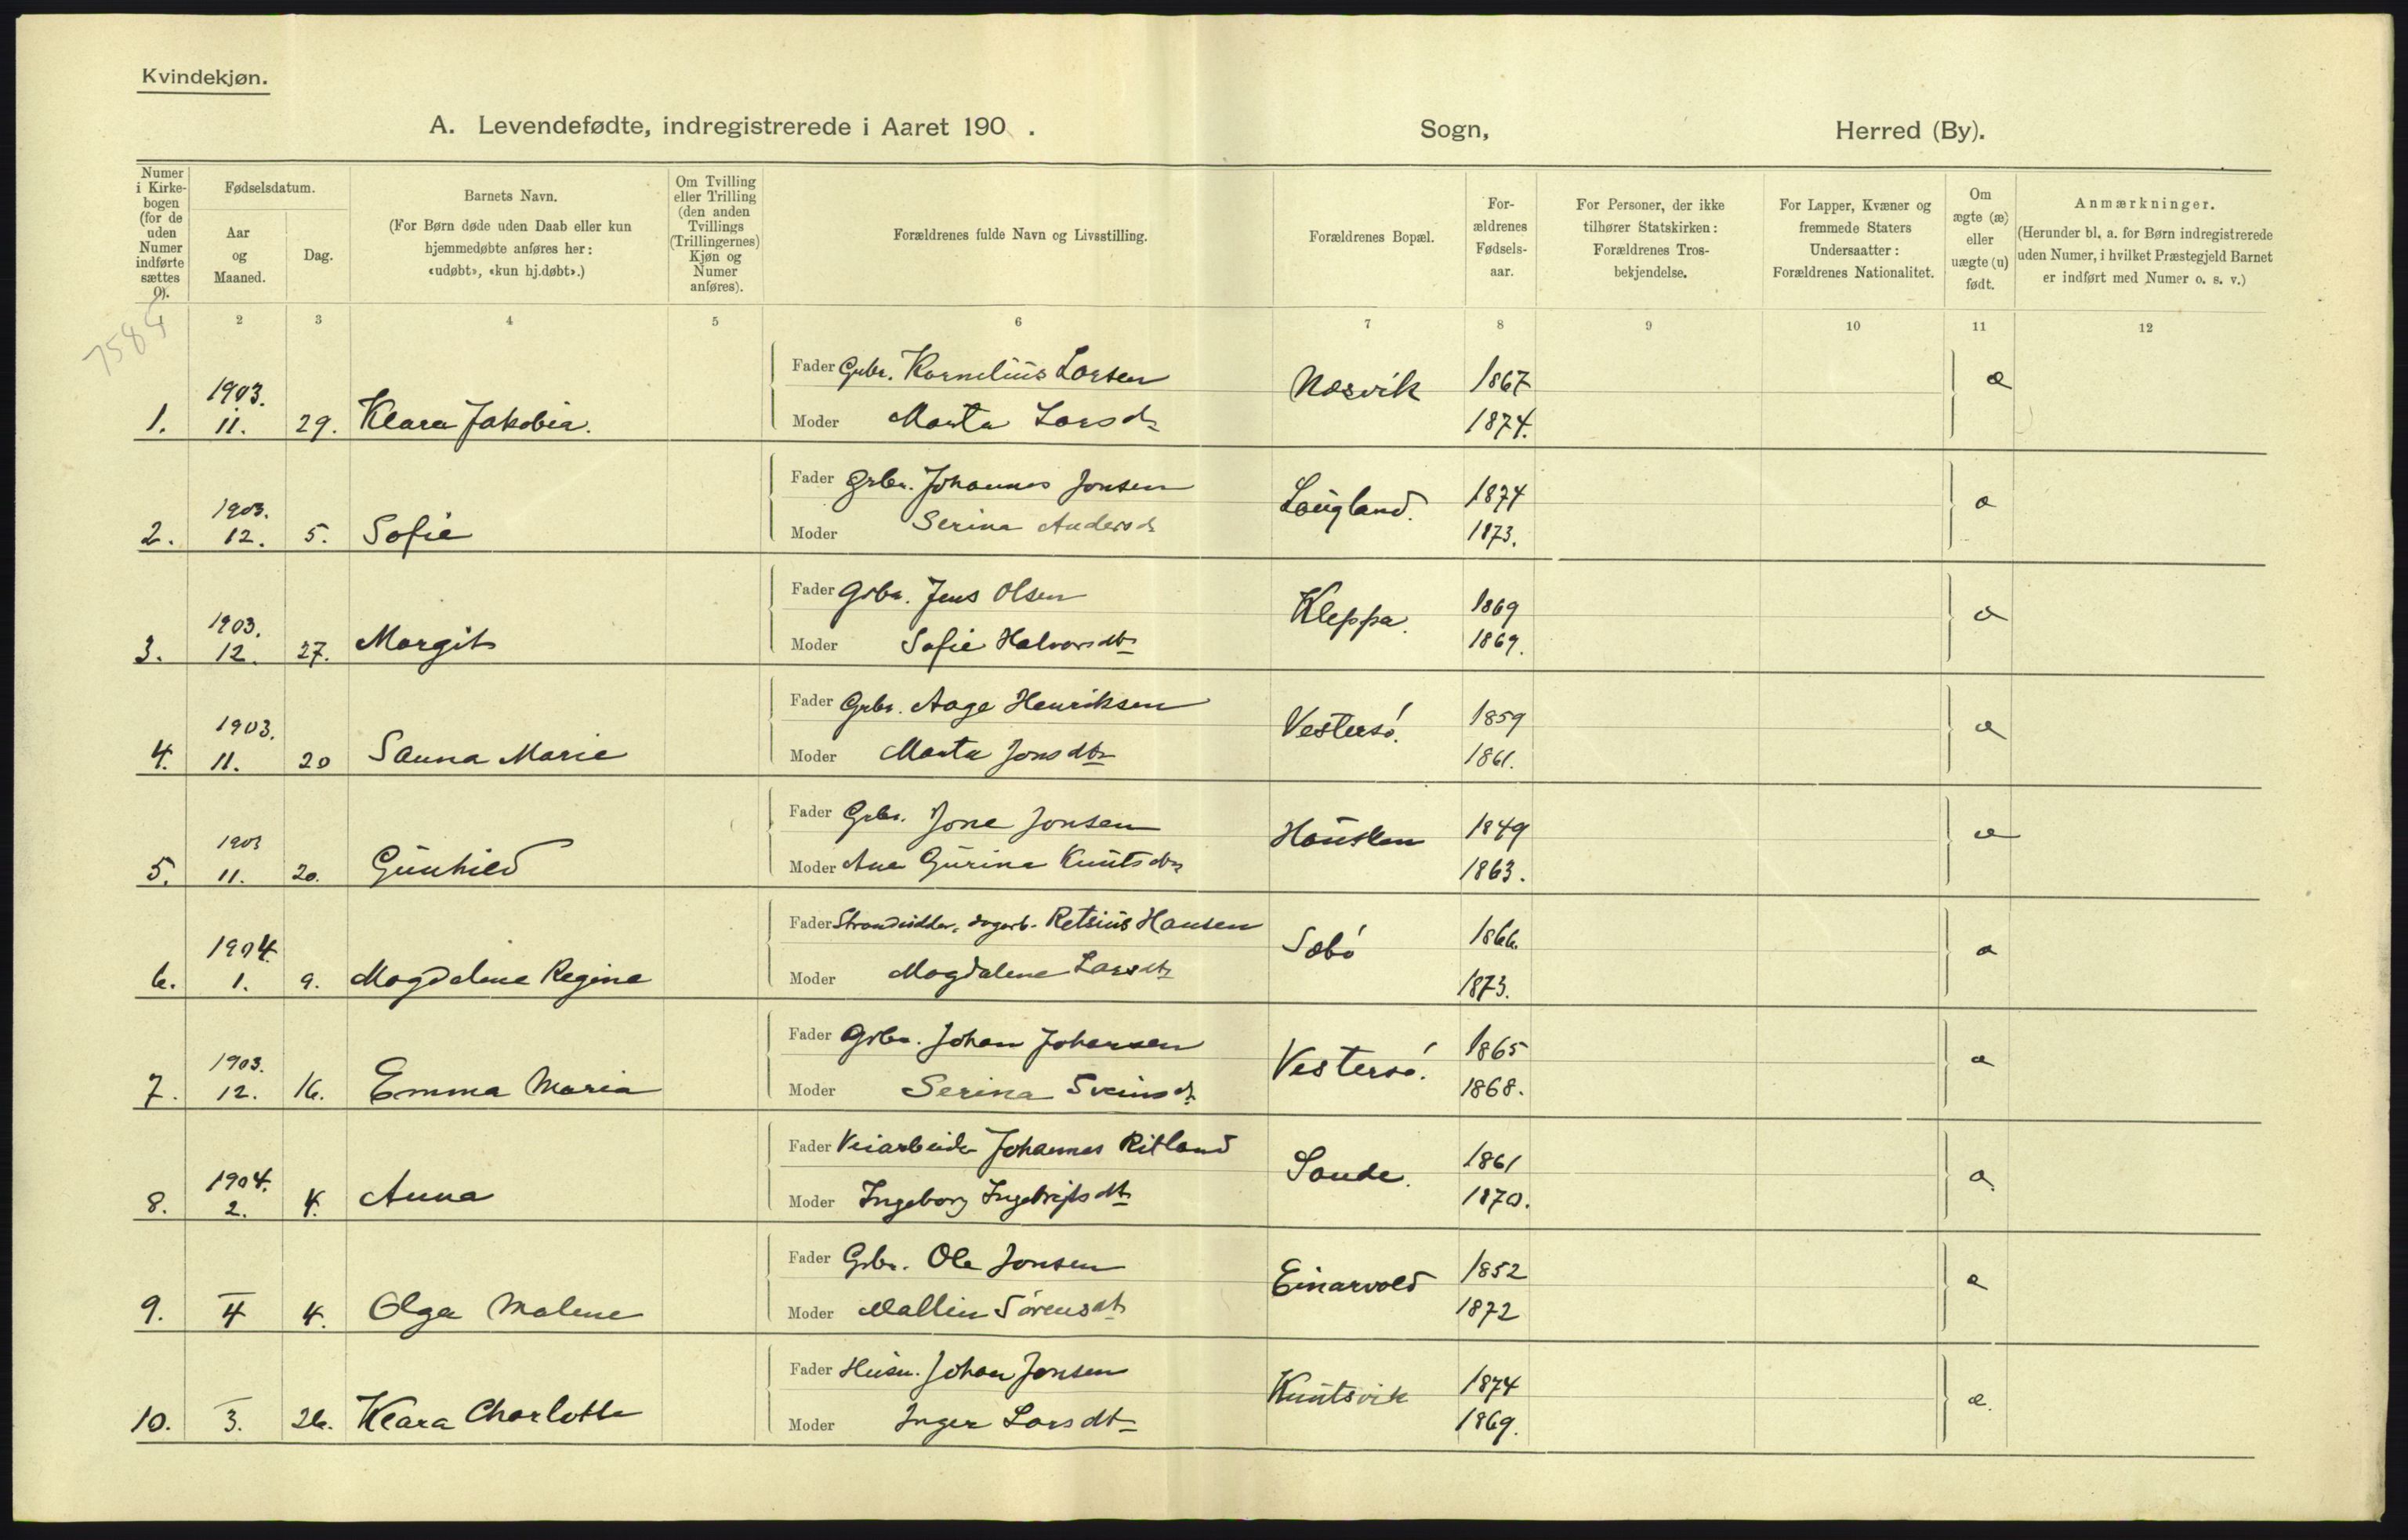 Kvindekjøn.
A. Levendefødte, indregistrerede i Aaret 190 . Sogn, Herred (By).
Numer i Kirkebogen (for de uden Numer indførte sættes 0).
Fødselsdatum.
Aar og Maaned.
Dag.
Barnets Navn.
(For Børn døde uden Daab eller kun hjemmedøbte anføres her: «udøbt», «kun hj.døbt».)
Om Tvilling eller Trilling (den anden Tvillings (Trillingernes) Kjøn og Numer anføres).
Forældrenes fulde Navn og Livsstilling.
Forældrenes Bopæl.
Forældrenes Fødselsaar.
For Personer, der ikke tilhører Statskirken: Forældrenes Trosbekjendelse.
For Lapper, Kvæner og fremmede Staters Undersaatter: Forældrenes Nationalitet.
Om ægte (æ) eller uægte (u) født.
Anmærkninger.
(Herunder bl. a. for Børn indregistrerede uden Numer, i hvilket Præstegjeld Barnet er indført med Numer o. s. v.)
2 3 4 5 6 7 8 9 10 11 12
Fader Gbr. Kornelius Larsen Næsvik 1867 æ
1903.
1. 11. 29. Klara Jakobia. Moder Marta Larsd. 1874.
Fader Grbr. Johannes Jonsen Laugland. 1874 æ
1903.
2. 12. 5. Sofie Moder Serina Andersd. 1873.
Fader Grbr. Jens Olsen Kleppa. 1869 æ
1903.
3. 12. 27. Margit Moder Sofie Halvorsdtr 1869.
Fader Grbr. Aage Henriksen Vestersø. 1859 æ
1903.
4. 11. 20 Sanna Marie Moder Marta Jonsdtr 1861.
Fader Grbr. Jone Jonsen Hausken 1849 æ
1903
5. 11. 20. Gunhild Moder Ane Gurine Knutsdtr 1863.
Fader Strandsidder, dagarb. Retsius Hansen Sæbø 1866. æ
1904.
6. 1. 9. Magdalene Regine Moder Magdalene Larsdtr 1873.
Fader Grbr. Johan Johansen Vestersø. 1865 æ
1903.
7. 12. 16. Emma Maria Moder Serina Sveinsd. 1868.
Fader Veiarbeider Johannes Ritland Sande. 1861 æ
1904.
8. 2. 4. Anna Moder Ingeborg Ingebrigtsdtr 1870.
Fader Grbr. Ole Jonsen Einarvold 1852 æ
9. 4 4. Olga Malene Moder Mallin Sørensdtr 1872
Fader Husm. Johan Jonsen Knutsvik 1874 æ.
10. 3. 26. Klara Charlotte Moder Inger Larsdtr 1869.